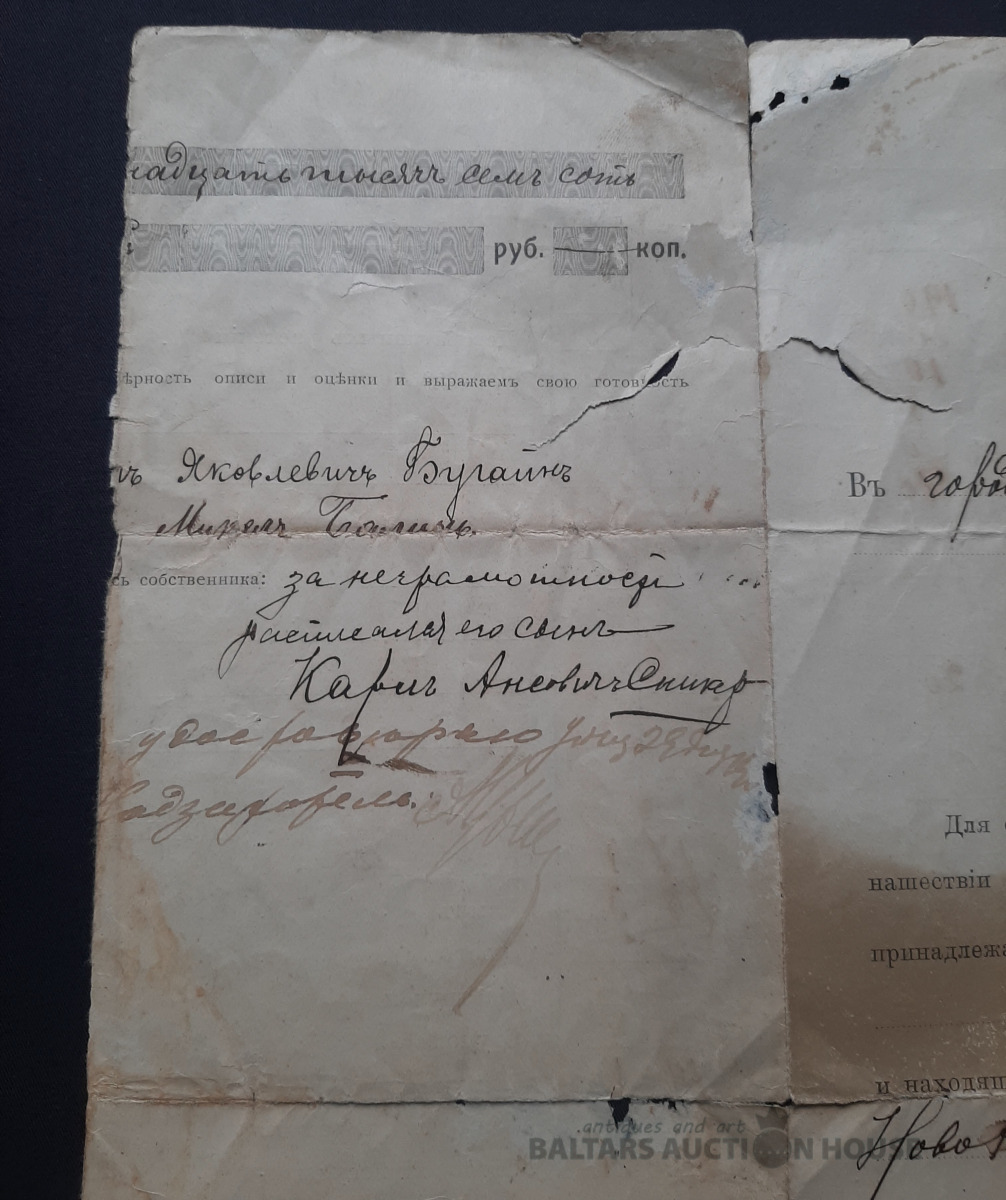 надцать тысячъ семъ сотъ
руб. — коп.
ѣрность описи и оцѣнки и выражаемъ свою готовность
Яковлевичъ Бугаинъ
Микель
сь собственника: за неграмотности
росписался его сынъ
Карлъ Ансовичъ
удостоверяю
Надзиратель
Въ горо
Для
нашествіи
принадлежа
и находящ
Ново
antiques and art
BALTARS AUCTION HOUSE